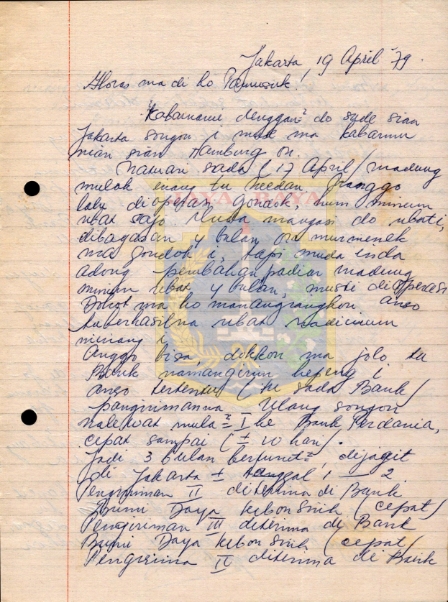 Jakarta, 19 April '79.
Horas ma di ho
Kabarnami denggan² do sude sian
Jakarta songon i muse ma kabarmu
nian sian Hamburg on.
Nantuari sada ( 17 April/ madung
mulak inang tu Medan
laho dioperasi, gondok, minum
ubat sajo do ubat i,
dibagasan bulan on
ma gondok i, tapi muda inda
adong pembahan padian madung
minum ubat bulan, musti dioperasi
Dohot ma ho mamangiangkon anso
marhasilna ubat madiminum
ninang i.
Anggo bisa, ma jolo tu
Bank namangirim hepeng i
anso tertentu ( tu sada Bank/
pengirimanna - Ulang songon
nalewat mula² I ke Bank Perdania,
cepat sampai ( ± 10 hari/.
Jadi 3 bulan berturut², dijagit
di Jakarta ± tanggal 1 - 2
Pengiriman II diterima di Bank
Bumi Daya Kebon Sirih ( cepat/
Pengiriman III diterima di Bank
Bumi Daya Kebon Sirih ( cepat/
Pengirima IV diterima di Bank